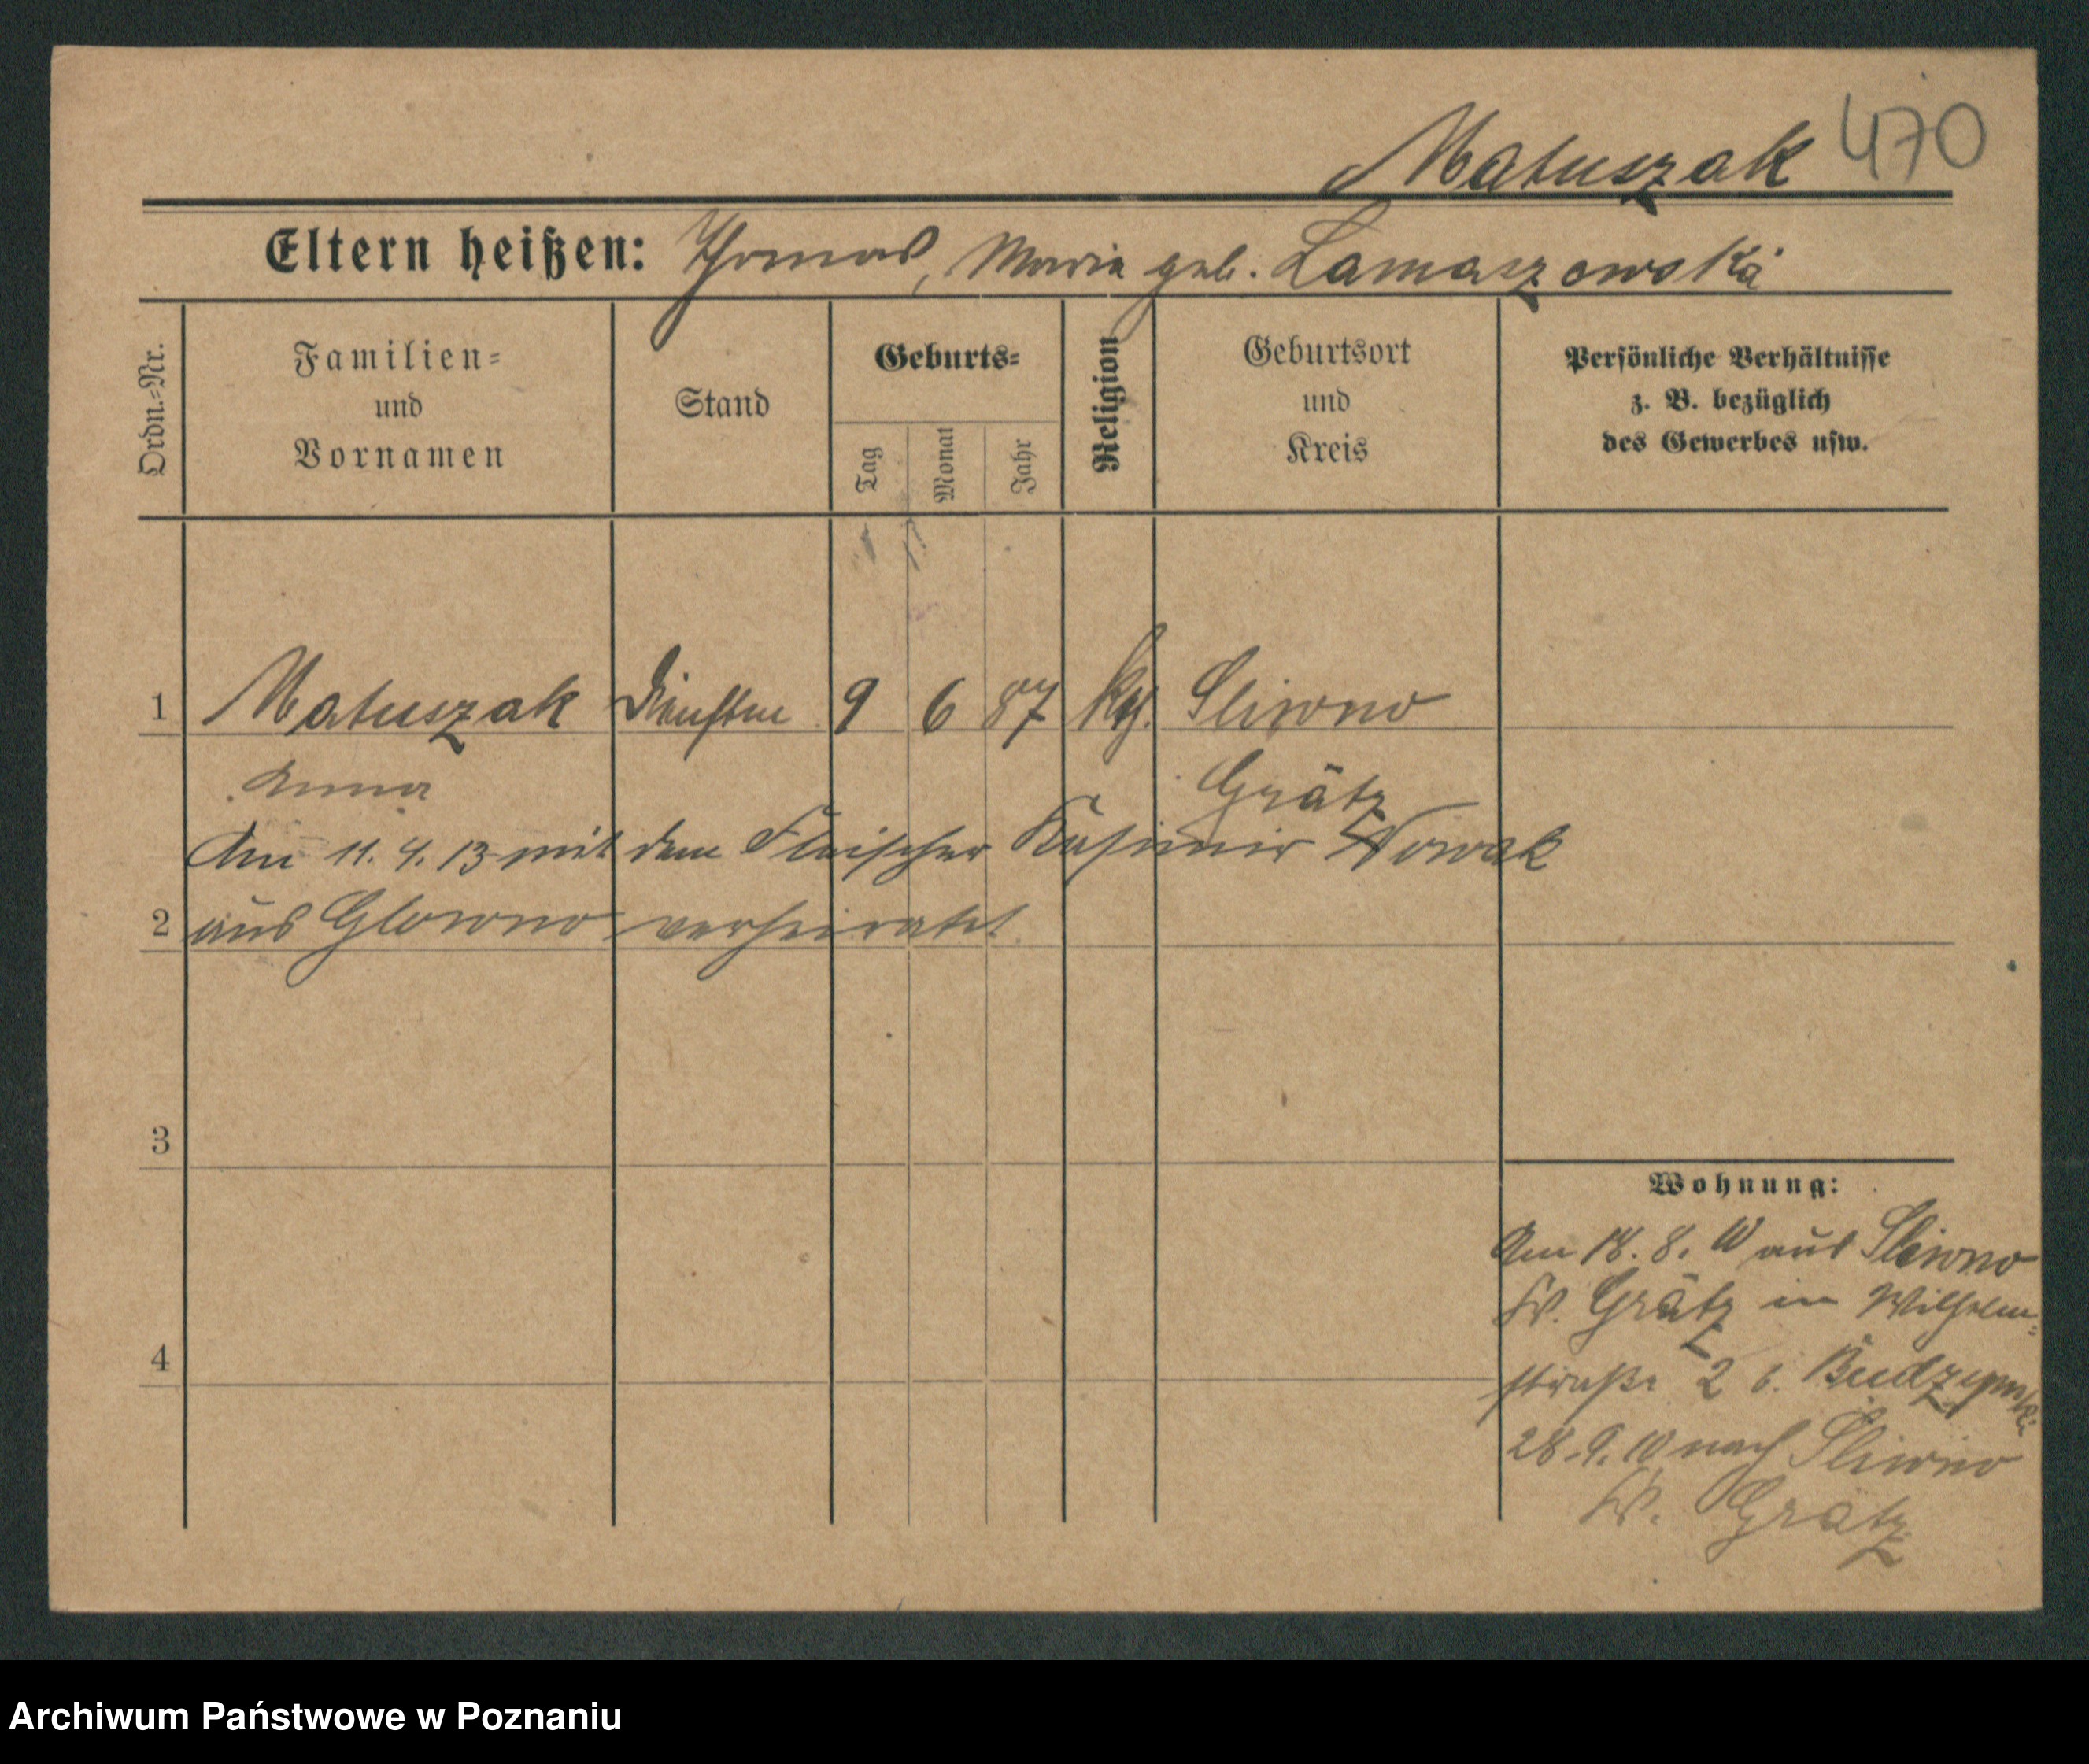 Matuszak 470
Eltern heißen: Thomas, Maria geb. Lamaszewska
Ordn.-Nr.
Familien-
und
Vornamen
Stand
Geburts-
Tag
Monat
Jahr
Religion
Geburtsort
und
Kreis
Persönliche Verhältnisse
z. B. bezüglich
des Gewerbes usw.
1 Matuszak 9 6 87 Sliwno
Anna Grätz
Am 11. 4. 13 mit dem Fleischer Kasimir Nowak
2 aus Glowno verheiratet.
3
4
Wohnung:
Am 18. 8. 10 aus Sliwno
Kr. Grätz in Wilhelm-
straße 2 b. Budzynski
28. 9. 10 nach Sliwno
Kr. Grätz
Archiwum Państwowe w Poznaniu